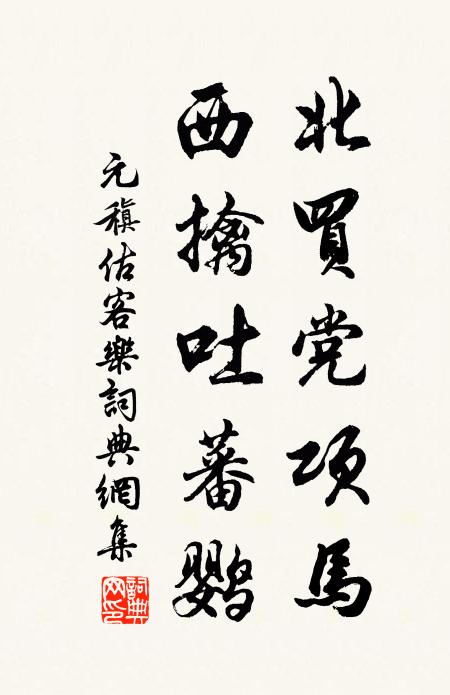 北買党项馬
西擒吐蕃鹦
元稹估客樂詞典網集
詞典网印